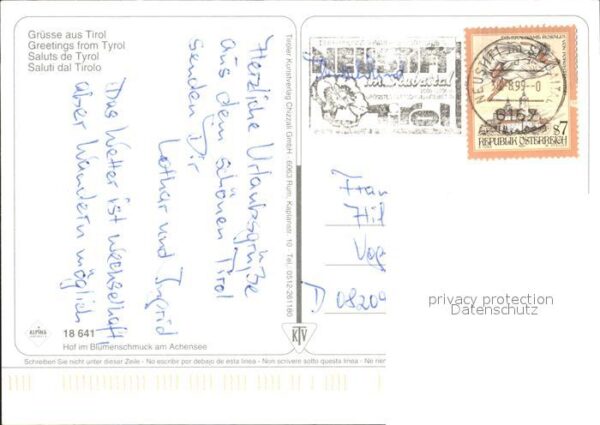 Grüsse aus Tirol
Greetings from Tyrol
Saluts de Tyrol
Saluti dal Tirolo
Herzliche Urlaubsgrüße
aus dem schönen Tirol
senden Dir
Lothar und Ingrid
Das Wetter ist wechselhaft,
aber Wandern möglich
ALPINA
18 641
Hof im Blumenschmuck am Achensee
Schreiben Sie nicht unter dieser Zeile - No escribir por debajo de esta linea - Non scrivere sotto questa linea - No
Tiroler Kunstverlag Chizzali GmbH · 6063 Rum, Kaplanstr. 10 Tel. 0512-261180
KTV
NEUSTIFT
im Stubaital
Tirol
NEUSTIFT IM STUBAITAL
8.99-0
6167
S7
REPUBLIK ÖSTERREICH
Hil
D 08209
privacy protection
Datenschutz